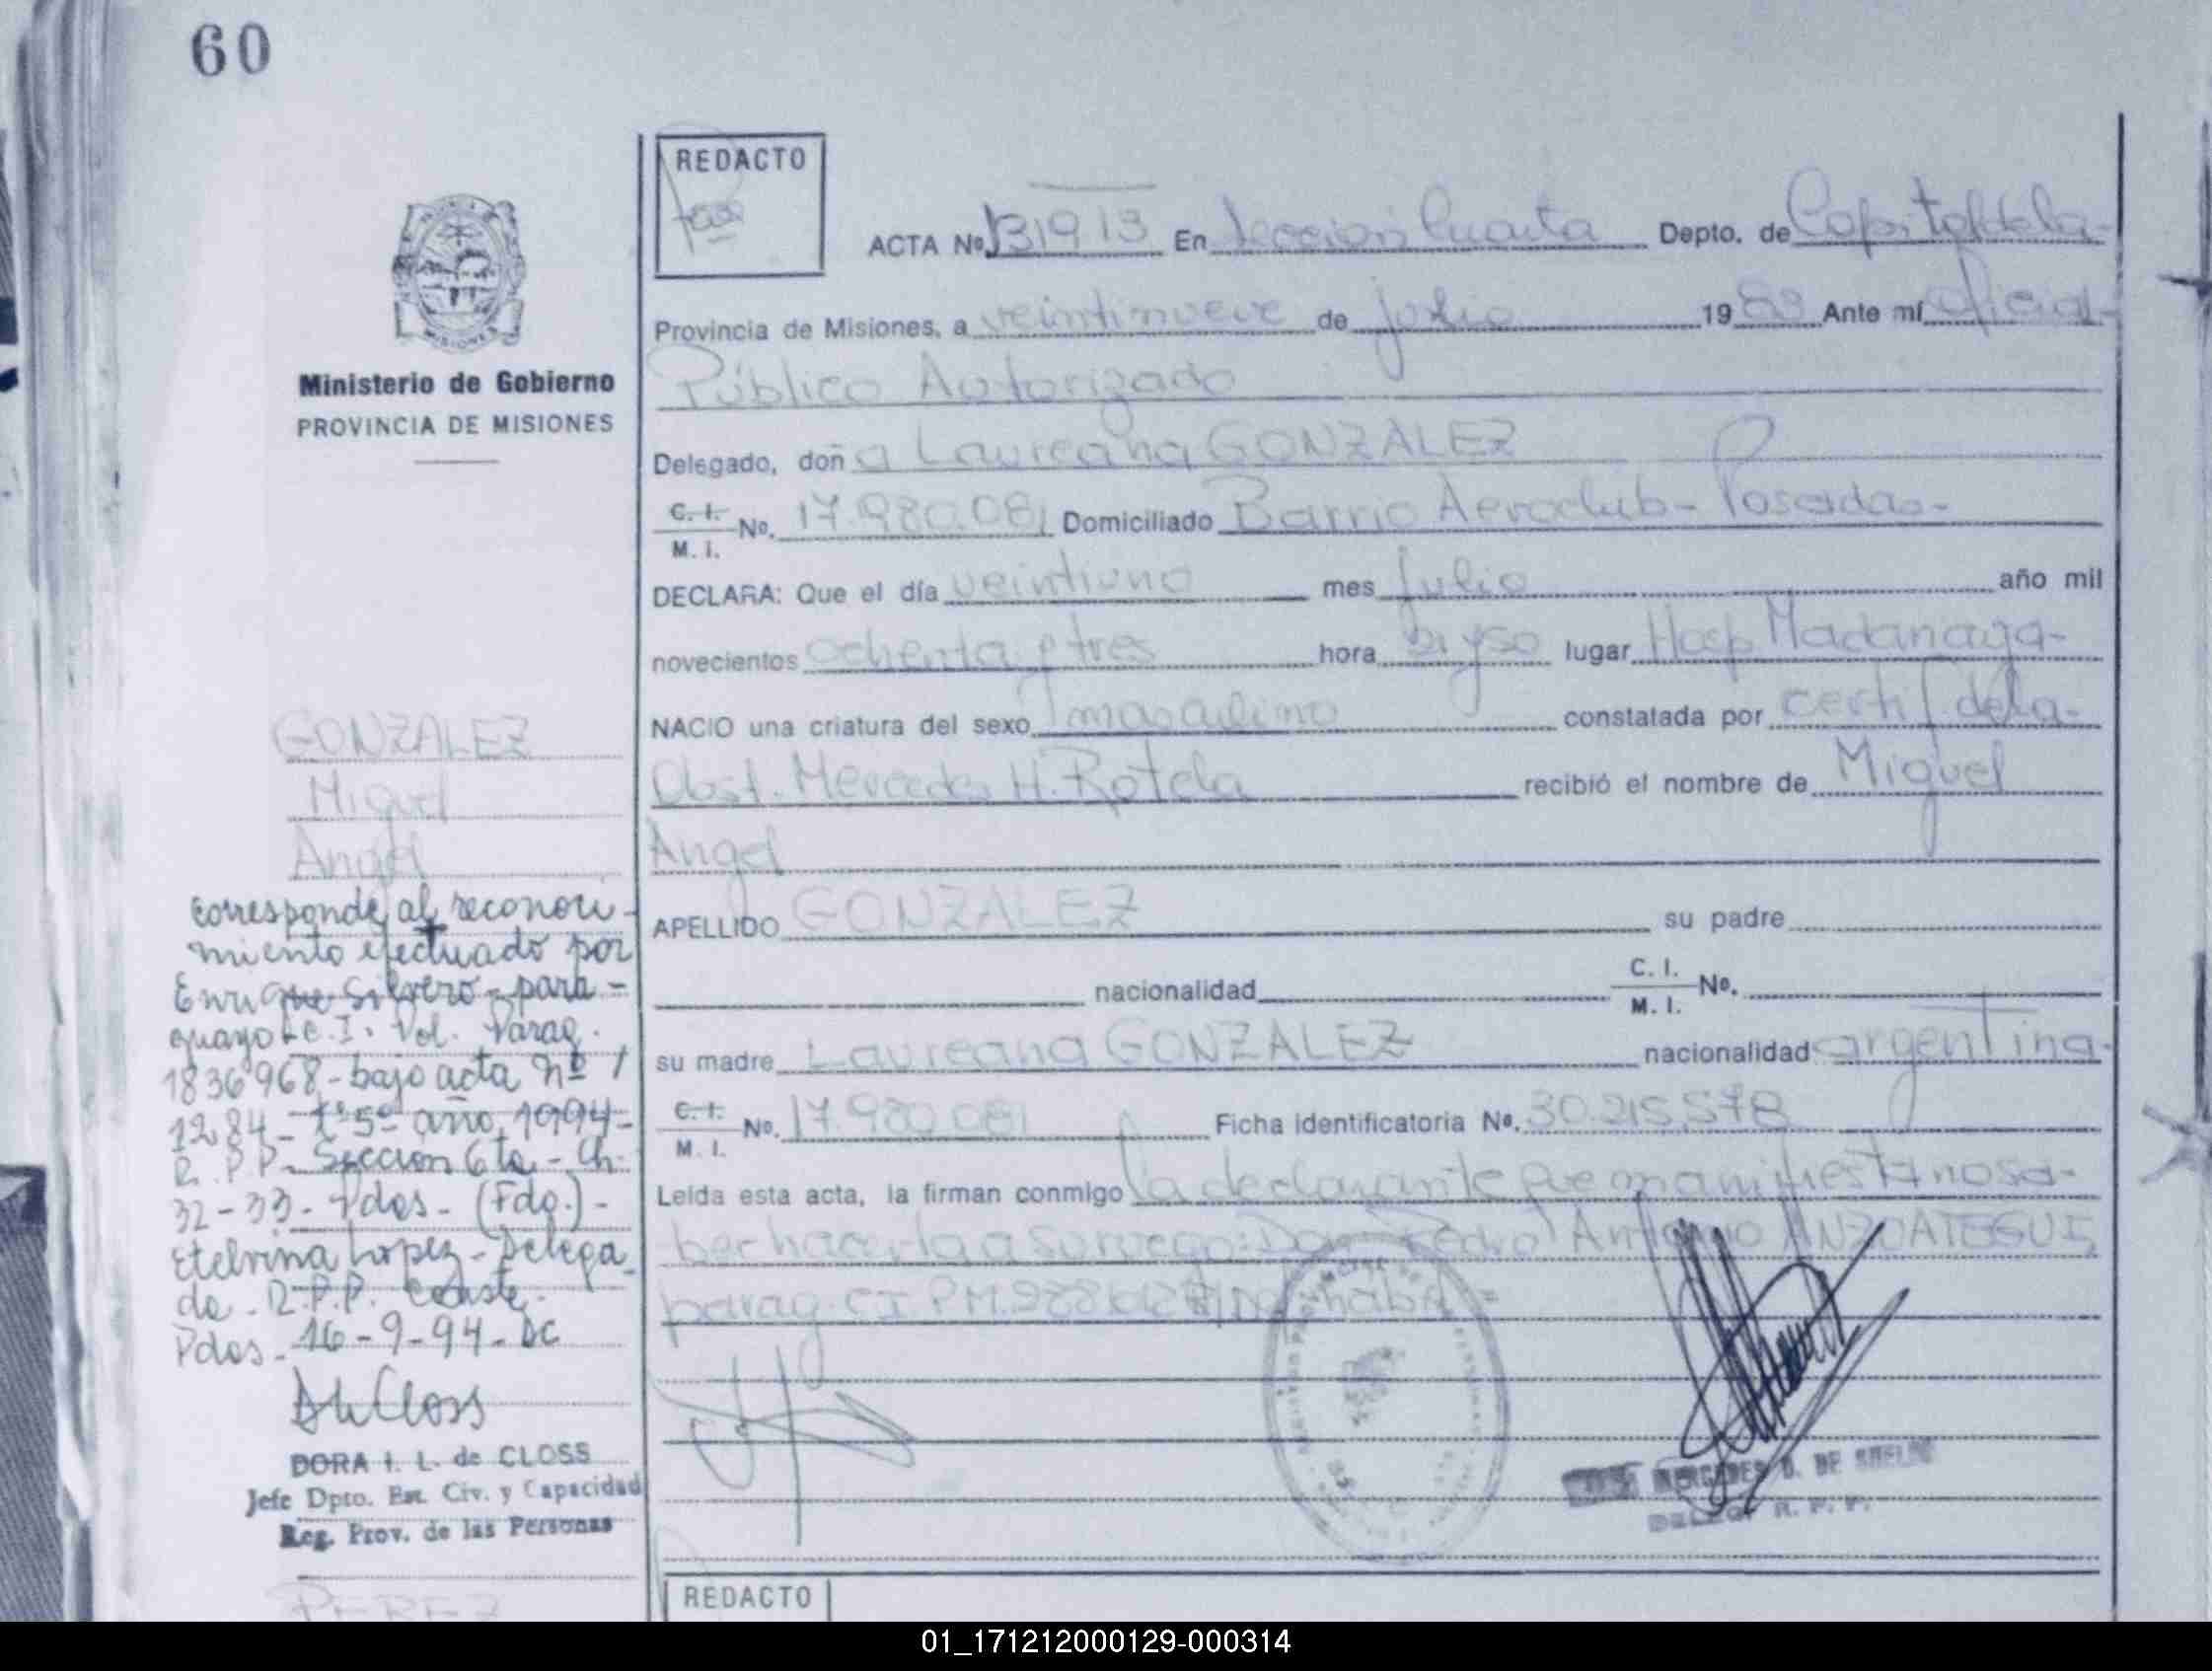 60
REDACTO
ACTA Nº 131913 En Sección Cuarta Depto. de Capital de la-
Provincia de Misiones, a veintinueve de julio 1983 Ante mí Oficial-
Público Autorizado
Delegado, doña Laureana GONZALEZ
C. I. M. I. No. 17.980.081 Domiciliado Barrio Aeroclub- Posadas-
DECLARA: Que el día veintiuno mes julio año mil
novecientos ochenta y tres hora 21 y 50 lugar Hosp Madariaga-
NACIO una criatura del sexo masculino constatada por certif. de la-
Obst. Mercedes H. Rotela recibió el nombre de Miguel
Angel
APELLIDO GONZALEZ su padre
nacionalidad C. I. M. I. No.
su madre Laureana GONZALEZ nacionalidad argentina-
C. I. M. I. No. 17.980.081 Ficha identificatoria No. 30.215.578
Leída esta acta, la firman conmigo la declarante que manifiesta no sa-
ber hacerlo a su ruego: Don Pedro Antonio ANZOATEGUI
parag. CI. P.M.
MISIONES
Ministerio de Gobierno
PROVINCIA DE MISIONES
GONZALEZ
Miguel
Angel
Corresponde al reconoci-
miento efectuado por
Enrique Silvero - para-
guayo - C. I. Pol. Parag.
1836968 - bajo acta nº
1284 - tº 5º año 1994-
R. P. P. Sección 6ta - Ch.
32-33 - Pdas - (Fdo.) -
Etelvina Lopez - Delega
da - R.P.P. Conste.
Pdas - 16-9-94 - DC
DORA I. L. de CLOSS
Jefe Dpto. Est. Civ. y Capacidad
Reg. Prov. de las Personas
MERCEDES D. DE
R. P. P.
PEREZ
REDACTO
01_171212000129-000314